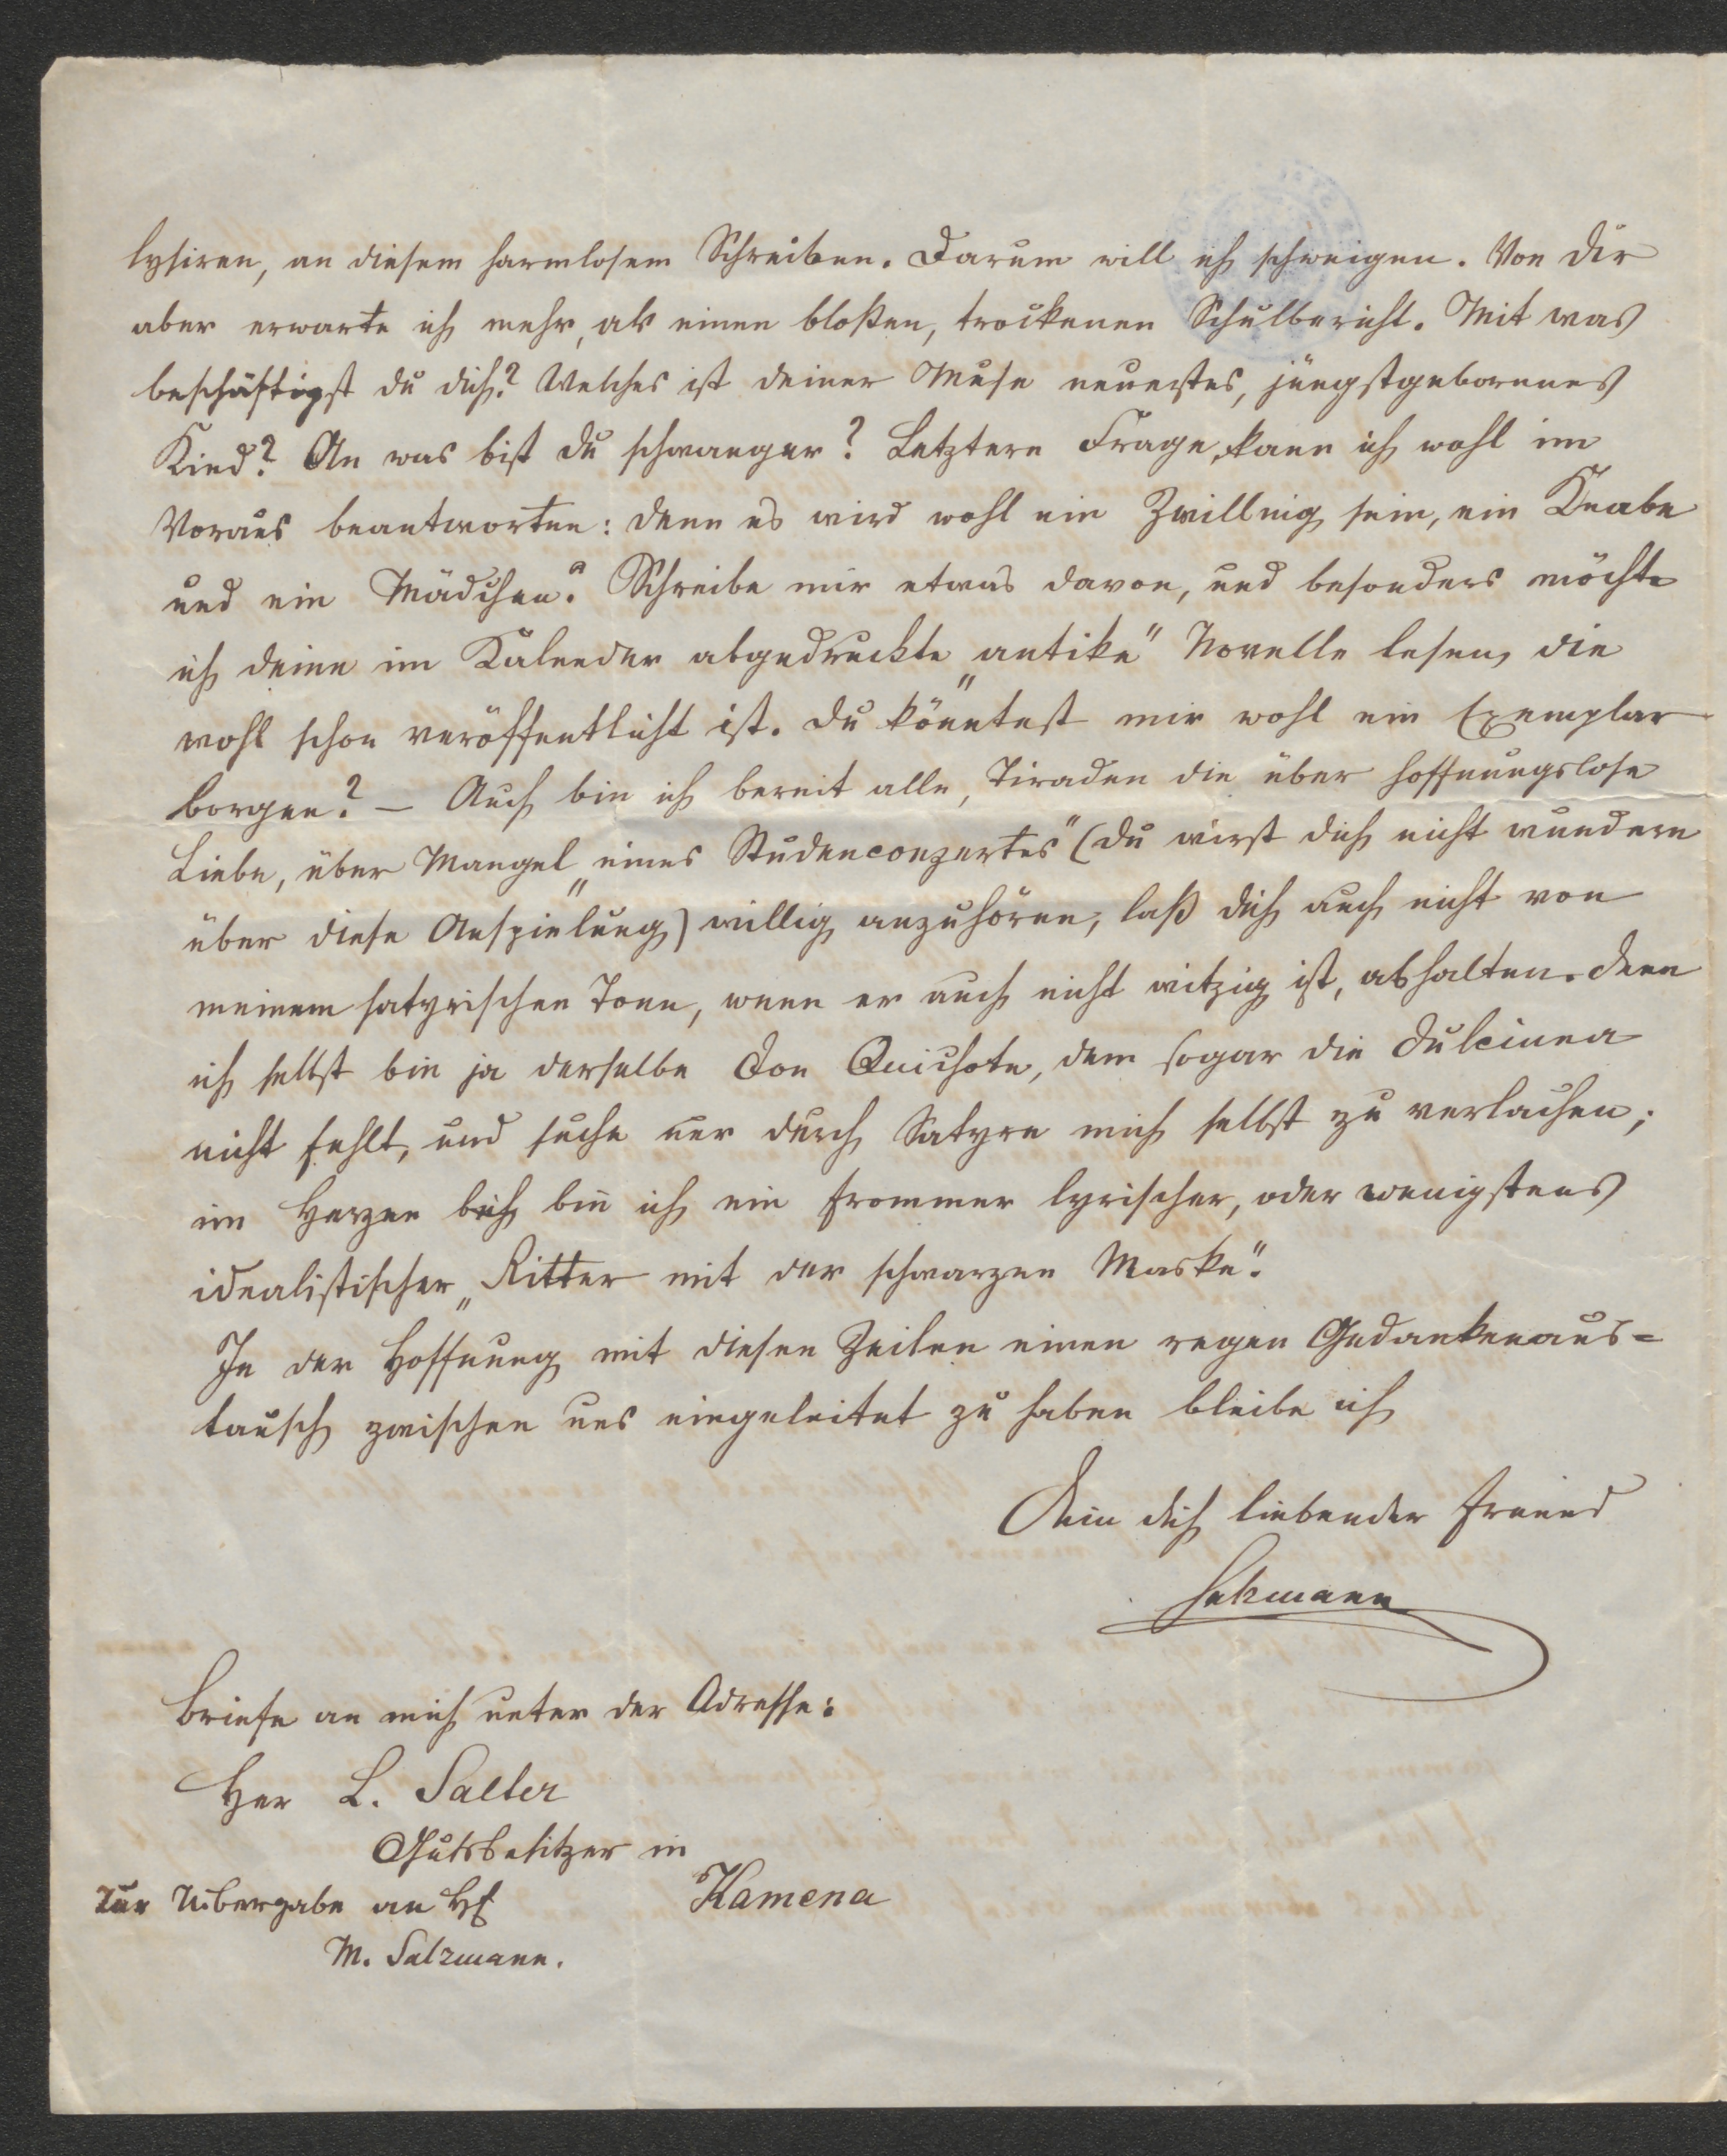 lysiren, an diesem harmlosem Schreiben. Darum will ich schweigen. Von dir
aber erwarte ich mehr, als einen bloßen, trockenen Schulbericht. Mit was
beschäftigst du dich? Welches ist deiner Muse neuestes, jüngstgeborenes
Kind? An was bist du schwanger? Letztere Frage, kann ich wohl im
Voraus beantworten: denn es wird wohl ein Zwilling sein, ein Knabe
und ein Mädchen." Schreibe mir etwas davon, und besonders möchte
ich deine im Kalender abgedruckte „antike" Novelle lesen, die
wohl schon veröffentlicht ist. Du könntest mir wohl ein Exemplar
borgen? — Auch bin ich bereit alle, Tiraden die über hoffnungslose
Liebe, über Mangel „eines Studenconzertes" (du wirst dich nicht wundern
über diese Anspielung) willig anzuhören, laß dich auch nicht von
meinem satyrischen Tone, wenn er auch nicht witzig ist, abhalten. denn
ich selbst bin ja derselbe Don Quichote, dem sogar die Dulcinea
nicht fehlt, und suche nur durch Satyre mich selbst zu verlachen;
im Herzen bin ich ein frommer lyrischer, oder wenigstens
idealistischer „Ritter mit der schwarzen Maske".
In der Hoffnung mit diesen Zeilen einen regen Gedankenaus=
tausch zwischen uns eingeleitet zu haben bleibe ich
Dein dich liebender Freund
Salzmann
Briefe an mich unter der Adresse:
Her L. Salter
Gutsbesitzer in
Kamena
zur Uibergabe an H
M. Salzmann.